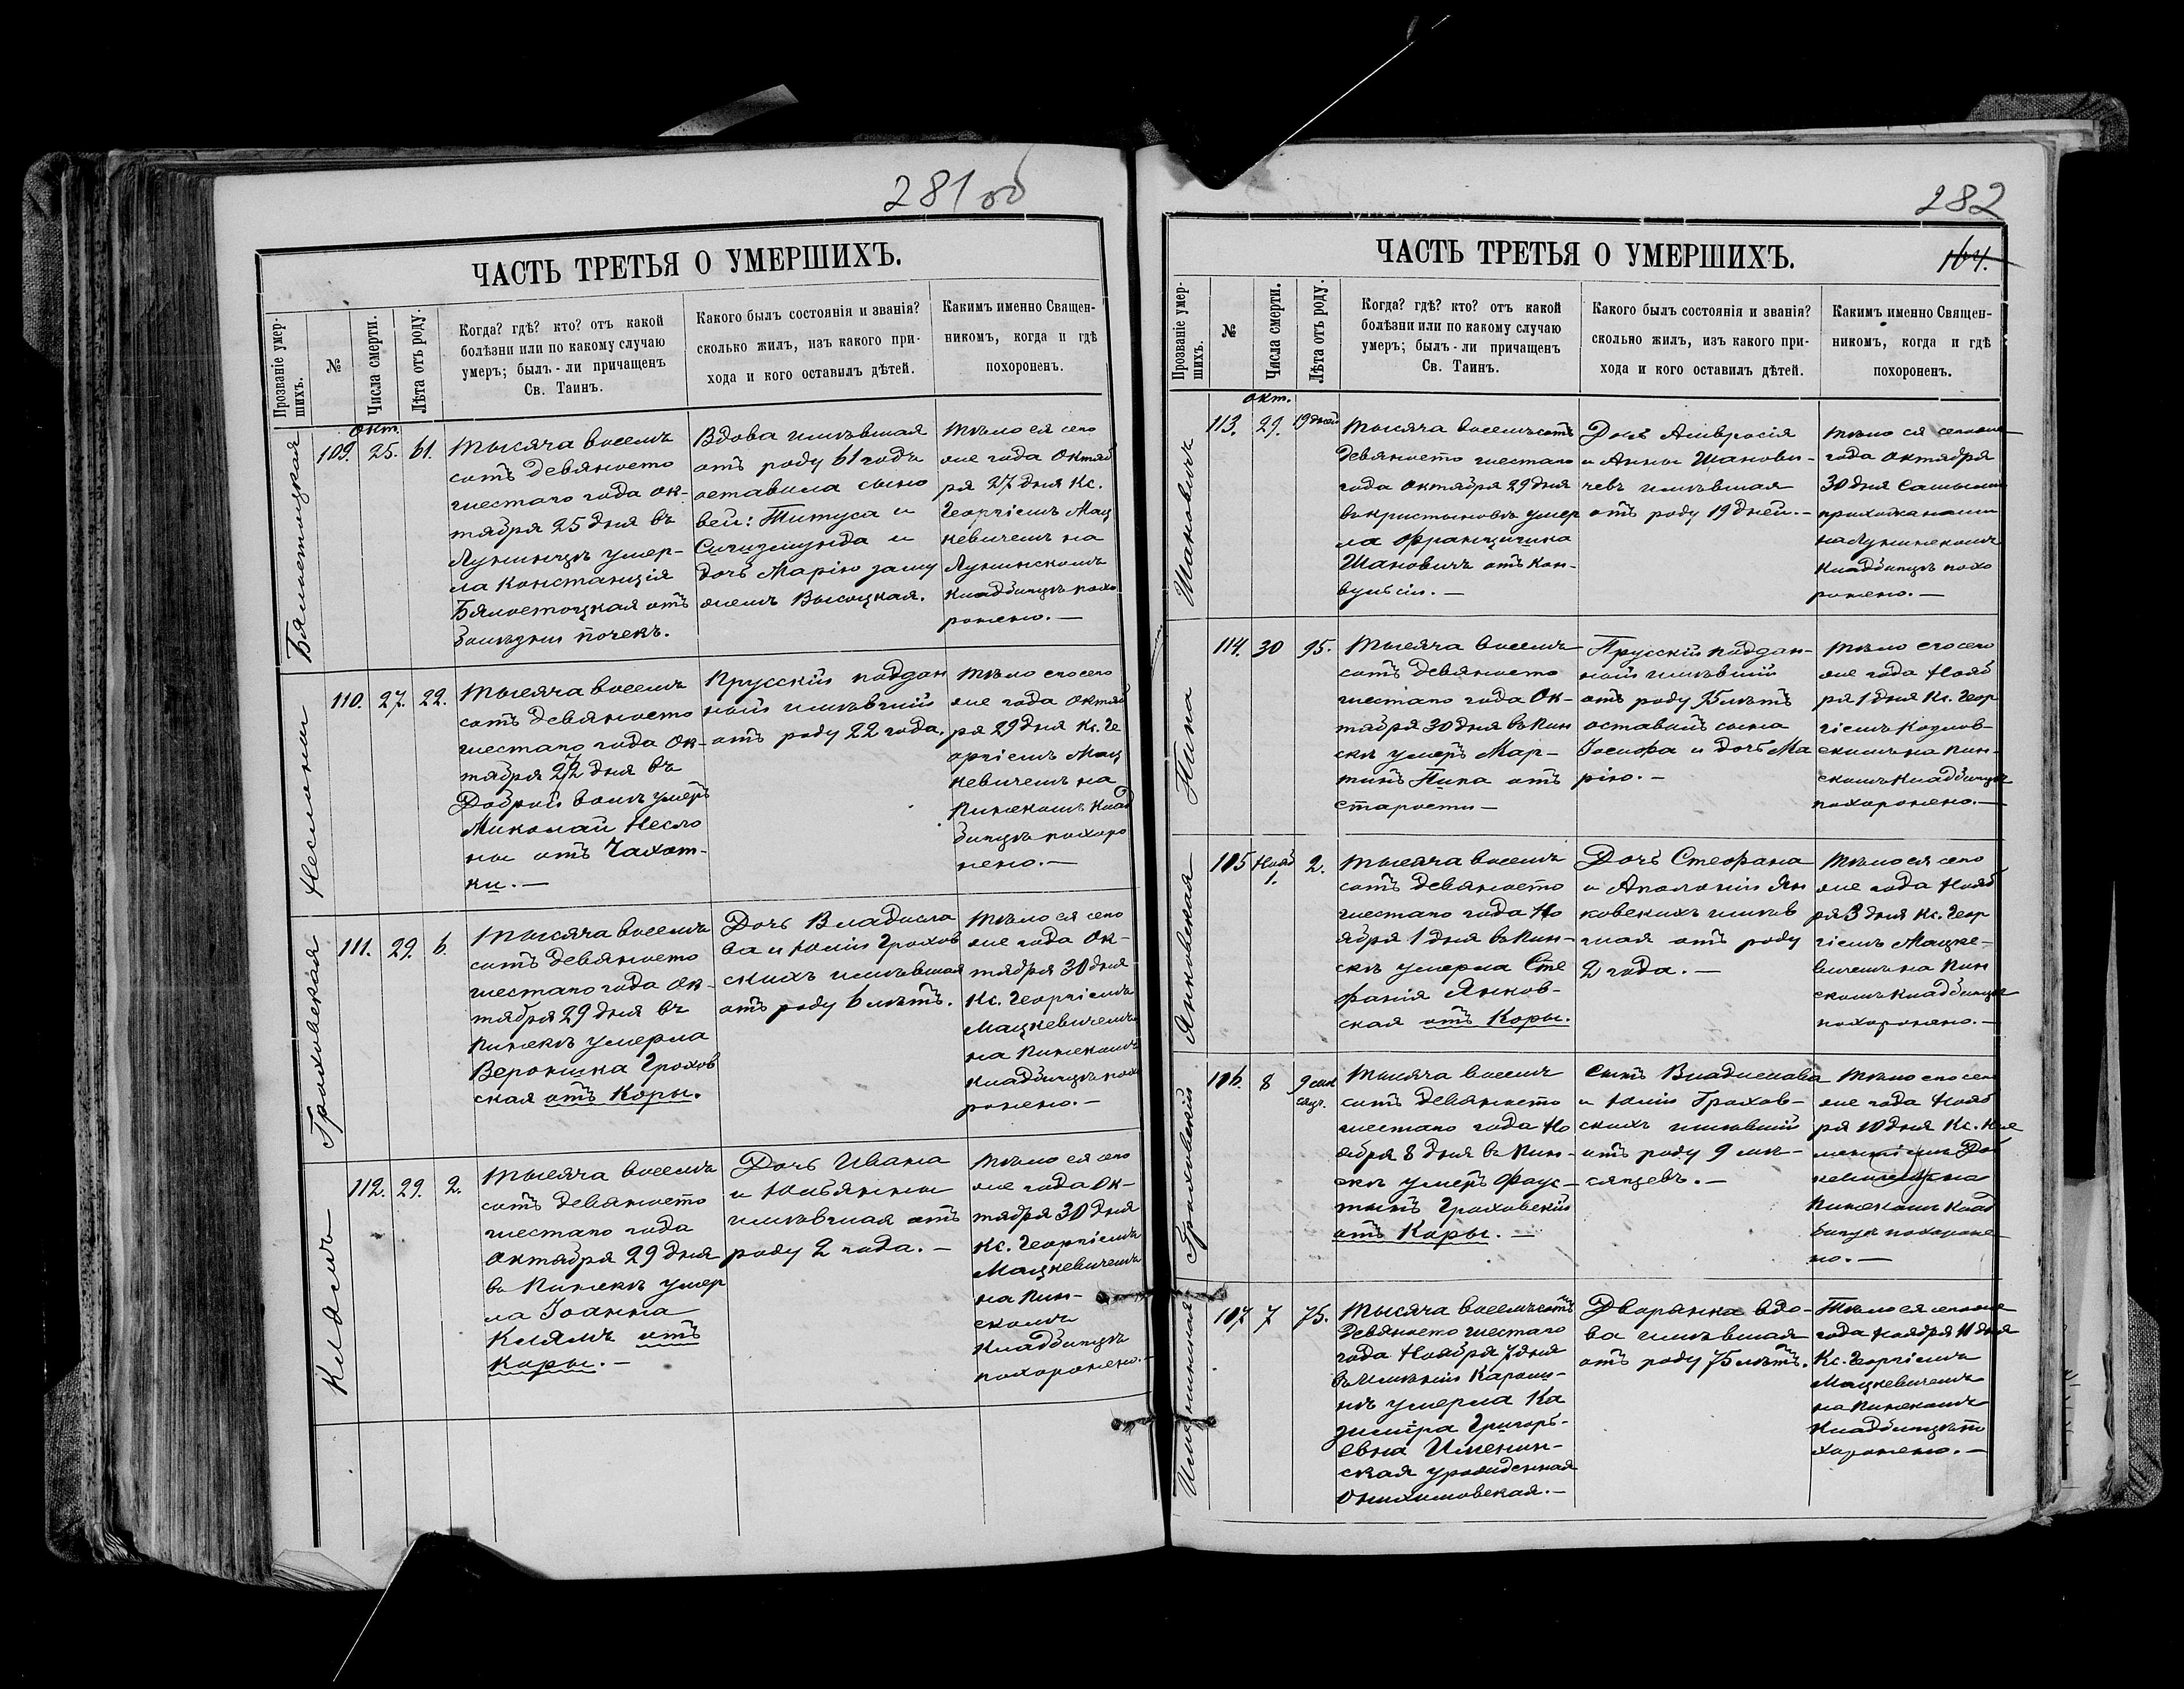 281 об
ЧАСТЬ ТРЕТЬЯ О УМЕРШИХЪ.
Прозваніе умер-
шихъ.
№
Числа смерти.
Лѣта отъ роду.
Когда? гдѣ? кто? отъ какой
болѣзни или по какому случаю
умеръ; былъ-ли причащенъ
Св. Таинъ.
Какого былъ состоянія и званія?
сколько жилъ, изъ какого при-
хода и кого оставилъ дѣтей.
Каким­ъ именно Священ-
никомъ, когда и гдѣ
похороненъ.
Бялыстоцкая
109.
окт.
25.
61.
Тысяча восемь
сотъ девяносто
шестаго года ок-
тября 25 дня въ
Лунинцѣ умер-
ла Констанція
Бялостоцкая отъ
болѣзни почекъ.
Вдова имѣвшая
отъ роду 61 годъ
оставила сыно
вей: Титуса и
Сигизмунда и
дочь Марію заму
жемъ Высоцкая.
Тѣло ея сего
же года Октяб
ря 27 дня Кс.
Георгіемъ Мац
кевичемъ на
Лунинскомъ
кладбищѣ похо
ронено.—
Неслоны
110.
27.
22.
Тысяча восемь
сотъ девяносто
шестаго года Ок-
тября 27 дня въ
Доброй Волѣ умеръ
Миколай Несло
ны отъ Чахот-
ки.—
Прусскій поддан
ный имѣвшій
отъ роду 22 года.
Тѣло его сего
же года Октяб
ря 29 дня Кс. Ге
оргіемъ Мац
кевичемъ на
Пинскомъ клад
бищѣ похоро
нено.—
Гроховская
111.
29.
6.
Тысяча восемь
сотъ девяносто
шестаго года Ок-
тября 29 дня въ
Пинскѣ умерла
Вероника Грохов
ская отъ Коры.
Дочь Владисла
ва и Юліи Грохов
скихъ имѣвшая
отъ роду 6 лѣтъ.
Тѣло ея сего
же года Ок-
тября 30 дня
Кс. Георгіемъ
Мацкевичемъ
на Пинскомъ
кладбищѣ похо
ронено.—
Клямъ
112.
29.
2.
Тысяча восемь
сотъ девяносто
шестаго года
Октября 29 дня
въ Пинскѣ умер
ла Іоанна
Клямъ отъ
Коры.—
Дочь Ивана
и Юльянны
имѣвшая отъ
роду 2 года.—
Тѣло ея сего
же года Ок-
тября 30 дня
Кс. Георгіемъ
Мацкевичемъ
на Пин-
скомъ
кладбищѣ
похоронено.—
282
164.
ЧАСТЬ ТРЕТЬЯ О УМЕРШИХЪ.
Прозваніе умер-
шихъ.
№
Числа смерти.
Лѣта отъ роду.
Когда? гдѣ? кто? отъ какой
болѣзни или по какому случаю
умеръ; былъ-ли причащенъ
Св. Таинъ.
Какого былъ состоянія и званія?
сколько жилъ, изъ какого при-
хода и кого оставилъ дѣтей.
Какимъ именно Священ-
никомъ, когда и гдѣ
похороненъ.
Шановичъ
113.
окт.
29.
19 дней
Тысяча восемьсотъ
девяносто шестаго
года Октября 29 дня
умер
ла Францишка
Шановичъ отъ Кон-
вульсіи.—
Дочь Амвросія
и Анны Шанови-
чевъ имѣвшая
отъ роду 19 дней.—
Тѣло ея сего же
года Октября
30 дня самыми
прихожанами
на Лунинскомъ
кладбищѣ похо
ронено.—
Пипа
114.
30
95.
Тысяча восемь
сотъ девяносто
шестаго года Ок-
тября 30 дня въ Пин
скѣ умеръ Мар-
тинъ Пипа отъ
старости—
Прусскій поддан-
ный имѣвшій
отъ роду 95 лѣтъ
оставилъ сына
Іосифа и дочь Ма
рію.—
Тѣло его сего
же года Нояб
ря 1 дня Кс. Геор
гіемъ Козлов-
скимъ на Пин-
скомъ кладбищѣ
похоронено.—
Янковская
105
Нояб
1.
2.
Тысяча восемь
сотъ девяносто
шестаго года Но
ября 1 дня въ Пин-
скѣ умерла Сте
фанія Янков-
ская отъ Коры.
Дочь Стефана
и Аполоніи Ян
ковскихъ имѣв
шая отъ роду
2 года.—
Тѣло ея сего
же года Нояб
ря 3 дня Кс. Геор
гіемъ Мацке-
вичемъ на Пин
скомъ кладбищѣ
похоронено.—
Гроховскій
106.
8
9 мѣ
сяц.
Тысяча восемь
сотъ девяносто
шестаго года Но
ября 8 дня въ Пин-
скѣ умеръ Фаус-
тынъ Гроховскій
отъ Коры.—
Сынъ Владислава
и Юліи Грохов-
скихъ имѣвшій
отъ роду 9 мѣ-
сяцевъ.—
Тѣло его сего
же года Нояб
ря 10 дня Кс. Кле
ментіемъ
на
Пинскомъ клад
бищѣ похороне
но.—
107
7
75.
Тысяча восемьсотъ
девяносто шестаго
года Ноября 7 дня
въ имѣніи Кароли-
нѣ умерла Ка
зимира Григорь-
евна Именин-
ская урожденная
Дворянка вдо-
ва имѣвшая
отъ роду 75 лѣтъ.
Тѣло ея сего же
года Ноября 11 дня
Кс. Георгіемъ
Мацкевичемъ
на Пинскомъ
кладбищѣ по
хоронено.—